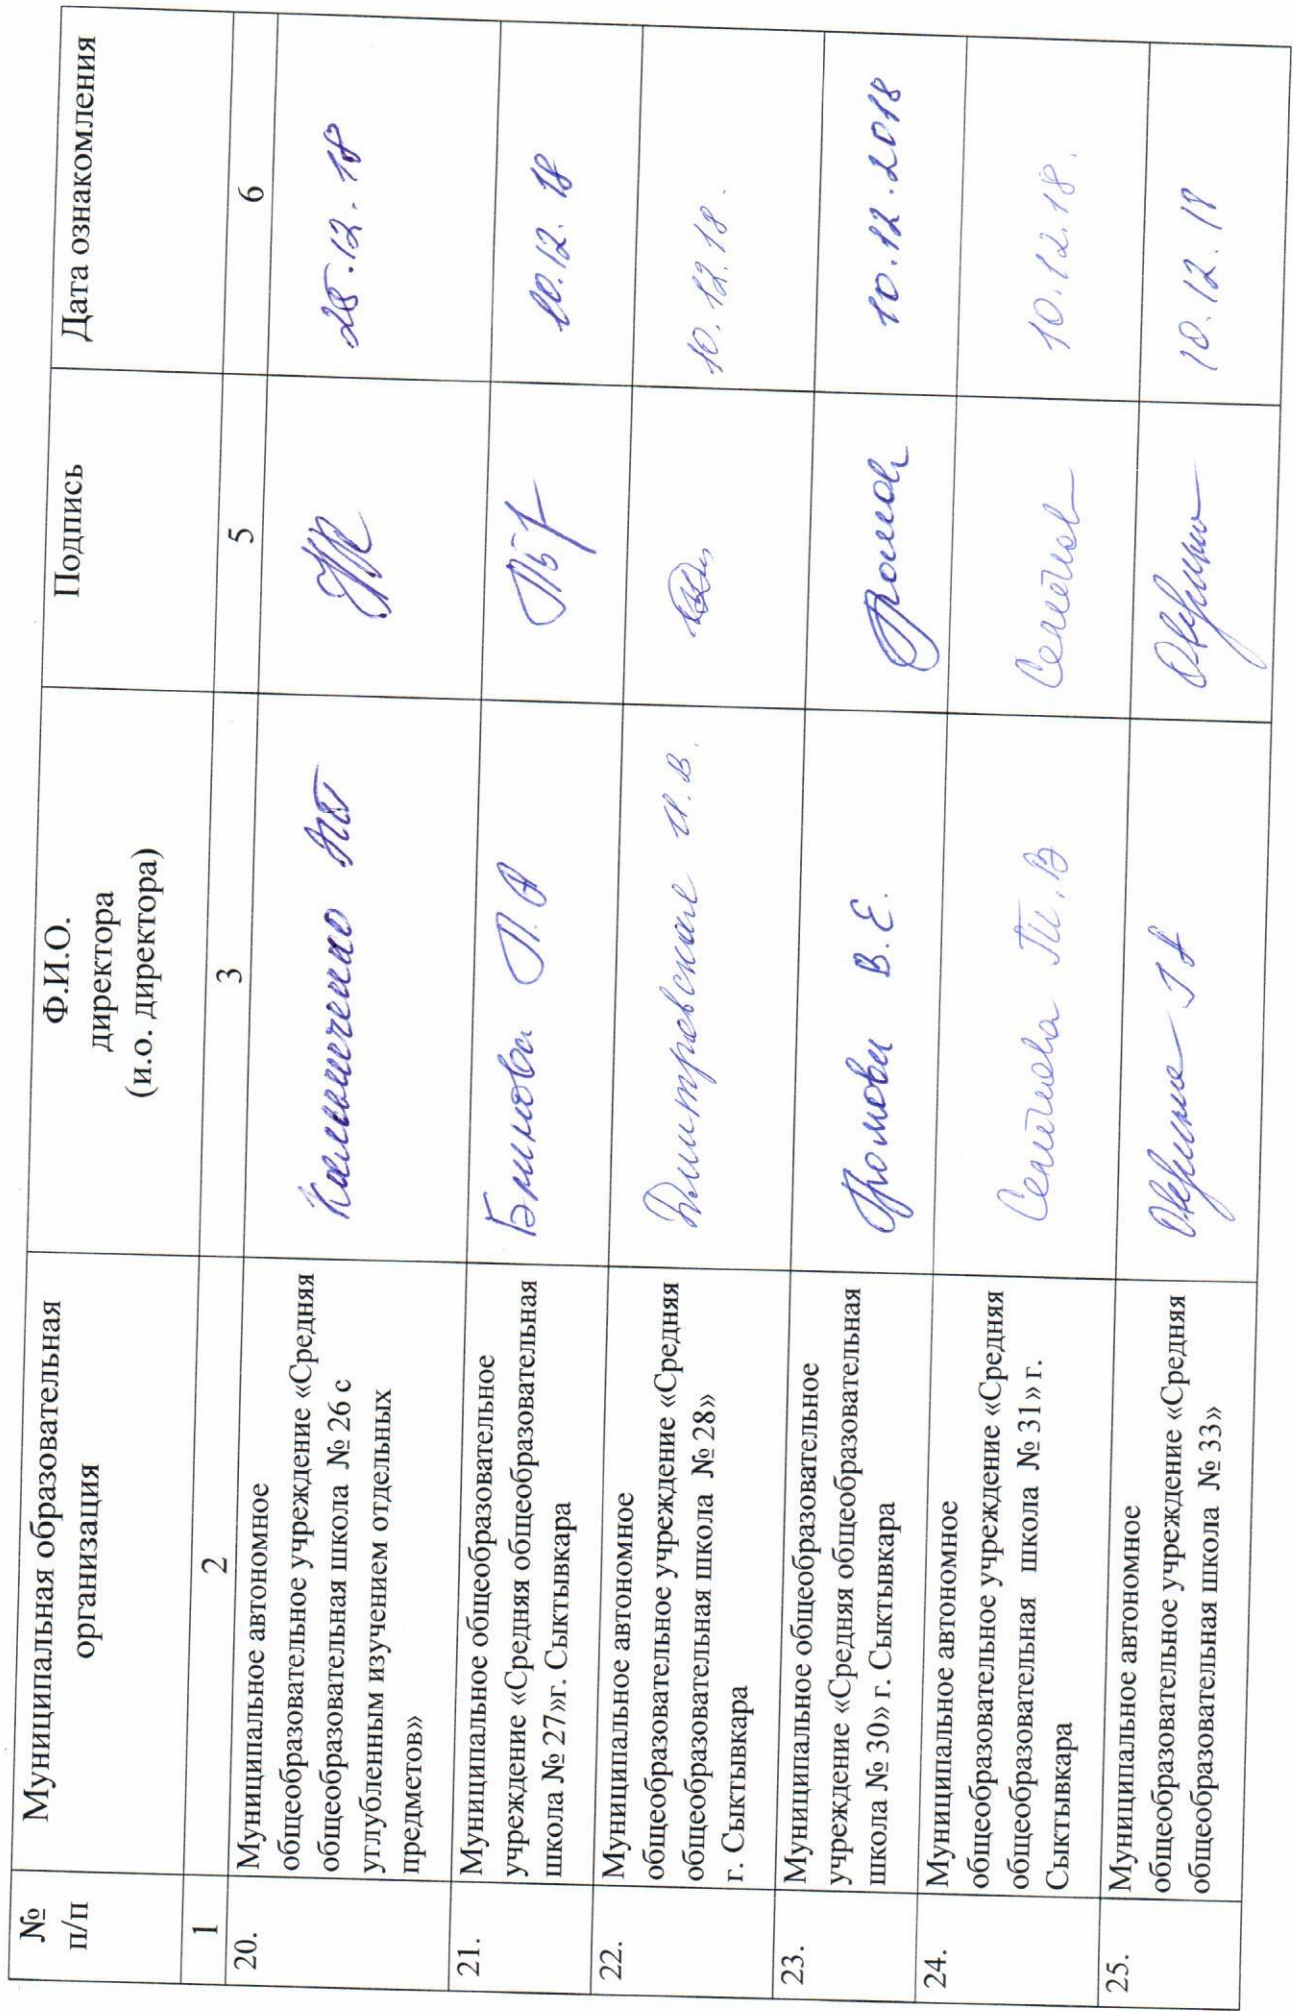 №
п/п
Муниципальная образовательная
организация
Ф.И.О.
директора
(и.о. директора)
Подпись
Дата ознакомления
1
2
3
5
6
20.
Муниципальное автономное
общеобразовательное учреждение «Средняя
общеобразовательная школа № 26 с
углубленным изучением отдельных
предметов»
.12.18
21.
Муниципальное общеобразовательное
учреждение «Средняя общеобразовательная
школа № 27»г. Сыктывкара
Блинова Л.А
10.12.18
22.
Муниципальное автономное
общеобразовательное учреждение «Средняя
общеобразовательная школа № 28»
г. Сыктывкара
И.В.
10.12.18.
23.
Муниципальное общеобразовательное
учреждение «Средняя общеобразовательная
школа № 30» г. Сыктывкара
Громова В.Е.
10.12.2018
24.
Муниципальное автономное
общеобразовательное учреждение «Средняя
общеобразовательная школа № 31» г.
Сыктывкара
10.12.18.
25.
Муниципальное автономное
общеобразовательное учреждение «Средняя
общеобразовательная школа № 33»
10.12.18